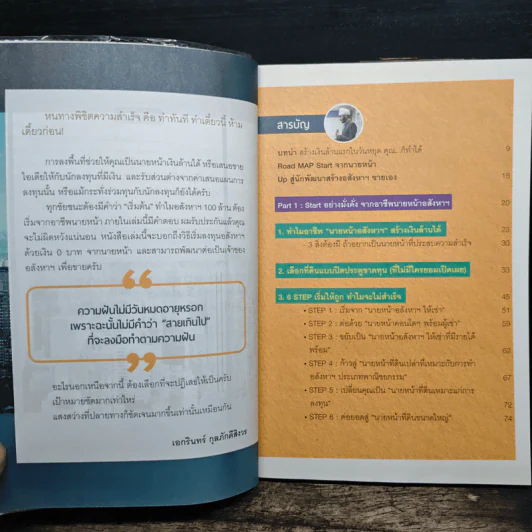 หนทางพิชิตความสำเร็จ คือ ทำทันที ทำเดี๋ยวนี้ ห้าม
เดี๋ยวก่อน!
การลงพื้นที่ช่วยให้คุณเป็นนายหน้าเงินล้านได้ หรือเสนอขาย
ไอเดียให้กับนักลงทุนที่มีเงิน และรับส่วนต่างจากค่าเสนอแผนการ
ลงทุนนั้น หรือแม้กระทั่งร่วมทุนกับนักลงทุนก็ยังได้ครับ
ทุกชัยชนะต้องมีคำว่า "เริ่มต้น" ทำไมอสังหาฯ 100 ล้าน ต้อง
เริ่มจากอาชีพนายหน้า ภายในเล่มนี้มีคำตอบ ผมรับประกันแล้วคุณ
จะไม่ผิดหวังแน่นอน หนังสือเล่มนี้จะบอกถึงวิธีเริ่มลงทุนอสังหาฯ
ด้วยเงิน 0 บาท จากนายหน้า และสามารถพัฒนาต่อเป็นเจ้าของ
อสังหาฯ เพื่อขายครับ
ความฝันไม่มีวันหมดอายุหรอก
เพราะฉะนั้นไม่มีคำว่า "สายเกินไป"
ที่จะลงมือทำตามความฝัน
อะไรนอกเหนือจากนี้ ต้องเลือกที่จะปฏิเสธให้เป็นครับ
เป้าหมายชัดมากเท่าไหร่
แสงสว่างที่ปลายทางก็ชัดเจนมากขึ้นเท่านั้นเหมือนกัน
เอกรินทร์ กุลภักดีสิงวร
สารบัญ
บทนำ สร้างเงินล้านแรกในวันหยุด คุณ...ก็ทำได้ 9
Road MAP Start จากนายหน้า
Up สู่นักพัฒนาสร้างอสังหาฯ ขายเอง 15
Part 1 : Start อย่างมั่งคั่ง จากอาชีพนายหน้าอสังหาฯ 20
1. ทำไมอาชีพ "นายหน้าอสังหาฯ" สร้างเงินล้านได้ 23
3 สิ่งต้องมี ถ้าอยากเป็นนายหน้าที่ประสบความสำเร็จ 30
2. เลือกที่ดินแบบปิดประตูขาดทุน (ที่ไม่มีใครยอมเปิดเผย) 33
3. 6 STEP เริ่มให้ถูก ทำไมจะไม่สำเร็จ 45
• STEP 1 : เริ่มจาก "นายหน้าอสังหาฯ ให้เช่า" 51
• STEP 2 : ต่อด้วย "นายหน้าคอนโดฯ พร้อมผู้เช่า" 59
• STEP 3 : ขยับเป็น "นายหน้าขายอสังหาฯ ให้เช่าที่มีรายได้
พร้อม" 62
• STEP 4 : ก้าวสู่ "นายหน้าที่ดินเปล่าที่เหมาะกับการทำ
อสังหาฯ ประเภทพาณิชยกรรม" 67
• STEP 5 : เปลี่ยนคุณเป็น "นายหน้าที่ดินเหมาะแก่การ
ลงทุน" 72
• STEP 6 : ต่อยอดสู่ "นายหน้าที่ดินขนาดใหญ่" 74